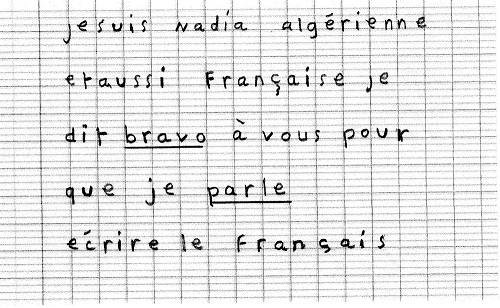 jesuis Nadia algérienne
etaussi Française je
dit bravo à vous pour
que je parle
écrire le Français